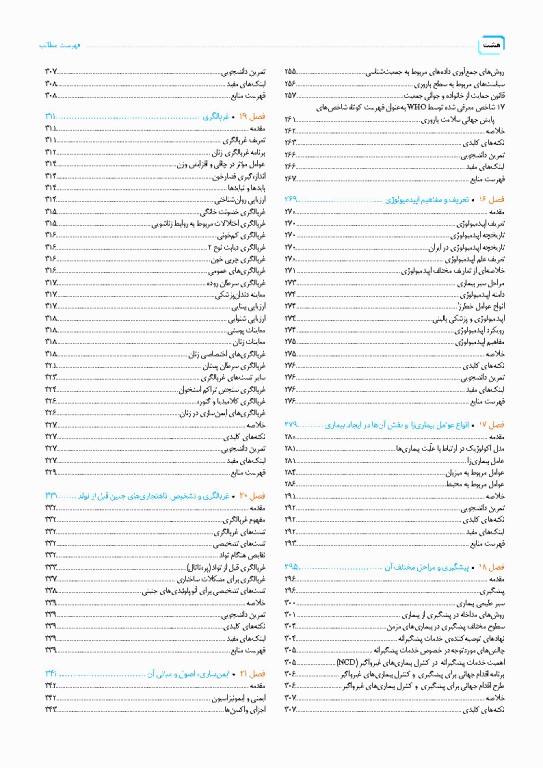 هشت
فهرست مطالب
روش‌های جمع‌آوری داده‌های مربوط به جمعیت‌شناسی ۲۵۵
سیاست‌های مربوط به سطح باروری ۲۵۶
قانون حمایت از خانواده و جوانی جمعیت ۲۵۷
۱۷ شاخص معرفی شده توسط WHO به‌عنوان فهرست کوتاه شاخص‌های
پایش جهانی سلامت باروری ۲۶۱
خلاصه ۲۶۲
نکته‌های کلیدی ۲۶۳
تمرین دانشجویی ۲۶۶
لینک‌های مفید ۲۶۶
فهرست منابع ۲۶۷
فصل ۱۶ • تعریف و مفاهیم اپیدمیولوژی ۲۶۹
مقدمه ۲۷۰
تعریف اپیدمیولوژی ۲۷۰
تاریخچه اپیدمیولوژی ۲۷۰
تاریخچه اپیدمیولوژی در ایران ۲۷۰
تعریف علم اپیدمیولوژی ۲۷۰
خلاصه‌ای از تعاریف مختلف اپیدمیولوژی ۲۷۱
مراحل سیر بیماری ۲۷۳
دامنه اپیدمیولوژی ۲۷۳
انواع عوامل خطرزا ۲۷۳
اپیدمیولوژی و پزشکی بالینی ۲۷۴
رویکرد اپیدمیولوژی ۲۷۴
مفاهیم اپیدمیولوژی ۲۷۵
خلاصه ۲۷۵
نکته‌های کلیدی ۲۷۶
تمرین دانشجویی ۲۷۶
لینک‌های مفید ۲۷۶
فهرست منابع ۲۷۶
فصل ۱۷ • انواع عوامل بیماری‌زا و نقش آن‌ها در ایجاد بیماری ۲۷۹
مقدمه ۲۸۰
مدل اکولوژیک در ارتباط با علّیت بیماری‌ها ۲۸۱
عامل بیماری‌زا ۲۸۱
عوامل مربوط به میزبان ۲۸۴
عوامل مربوط به محیط ۲۸۶
خلاصه ۲۹۱
تمرین دانشجویی ۲۹۲
نکته‌های کلیدی ۲۹۲
لینک‌های مفید ۲۹۲
فهرست منابع ۲۹۳
فصل ۱۸ • پیشگیری و مراحل مختلف آن ۲۹۵
مقدمه ۲۹۶
پیشگیری ۲۹۶
سیر طبیعی بیماری ۳۰۰
روش‌های مداخله در پیشگیری از بیماری ۳۰۱
سطوح مختلف پیشگیری در بیماری‌های مزمن ۳۰۴
نهادهای توصیه‌کننده‌ی خدمات پیشگیرانه ۳۰۴
چالش‌های موردتوجه در خصوص خدمات پیشگیرانه ۳۰۵
اهمیت خدمات پیشگیرانه در کنترل بیماری‌های غیرواگیر (NCD) ۳۰۵
برنامه اقدام جهانی برای پیشگیری و کنترل بیماری‌های غیرواگیر ۳۰۶
طرح اقدام جهانی برای پیشگیری و کنترل بیماری‌های غیرواگیر ۳۰۶
خلاصه ۳۰۷
نکته‌های کلیدی ۳۰۷
تمرین دانشجویی ۳۰۷
لینک‌های مفید ۳۰۸
فهرست منابع ۳۰۸
فصل ۱۹ • غربالگری ۳۱۱
مقدمه ۳۱۱
تعریف غربالگری ۳۱۱
برنامه غربالگری زنان ۳۱۲
عوامل مؤثر در چاقی و افزایش وزن ۳۱۴
اندازه‌گیری فشارخون ۳۱۴
بایدها و نبایدها ۳۱۴
ارزیابی روان‌شناختی ۳۱۴
غربالگری خشونت خانگی ۳۱۵
غربالگری اختلالات مربوط به روابط زناشویی ۳۱۵
غربالگری کم‌خونی ۳۱۶
غربالگری دیابت نوع ۲ ۳۱۶
غربالگری چربی خون ۳۱۶
غربالگری‌های عمومی ۳۱۶
غربالگری سرطان روده ۳۱۷
معاینه دندان‌پزشکی ۳۱۷
ارزیابی بینایی ۳۱۷
ارزیابی شنوایی ۳۱۸
معاینات پوستی ۳۱۸
معاینات زنان ۳۱۸
غربالگری‌های اختصاصی زنان ۳۱۸
غربالگری سرطان پستان ۳۲۱
سایر تست‌های غربالگری ۳۲۳
غربالگری سنجش تراکم استخوان ۳۲۴
غربالگری کلامیدیا و گنوره ۳۲۶
غربالگری‌های ایمن‌سازی در زنان ۳۲۶
خلاصه ۳۲۷
نکته‌های کلیدی ۳۲۷
تمرین دانشجویی ۳۲۷
لینک‌های مفید ۳۲۸
فهرست منابع ۳۲۹
فصل ۲۰ • غربالگری و تشخیص ناهنجاری‌های جنین قبل از تولد ۳۳۱
مقدمه ۳۳۲
مفهوم غربالگری ۳۳۲
تست‌های غربالگری ۳۳۲
تست‌های تشخیصی ۳۳۲
نقایص هنگام تولد ۳۳۲
غربالگری قبل از تولد (پره‌ناتال) ۳۳۳
غربالگری برای مشکلات ساختاری ۳۳۷
تست‌های تشخیصی برای آنوپلوئیدی‌های جنینی ۳۳۸
خلاصه ۳۳۹
تمرین دانشجویی ۳۳۹
نکته‌های کلیدی ۳۳۹
لینک‌های مفید ۳۳۹
فهرست منابع ۳۳۹
فصل ۲۱ • ایمن‌سازی، اصول و مبانی آن ۳۴۱
مقدمه ۳۴۲
ایمنی و ایمونیزاسیون ۳۴۲
اجزای واکسن‌ها ۳۴۳